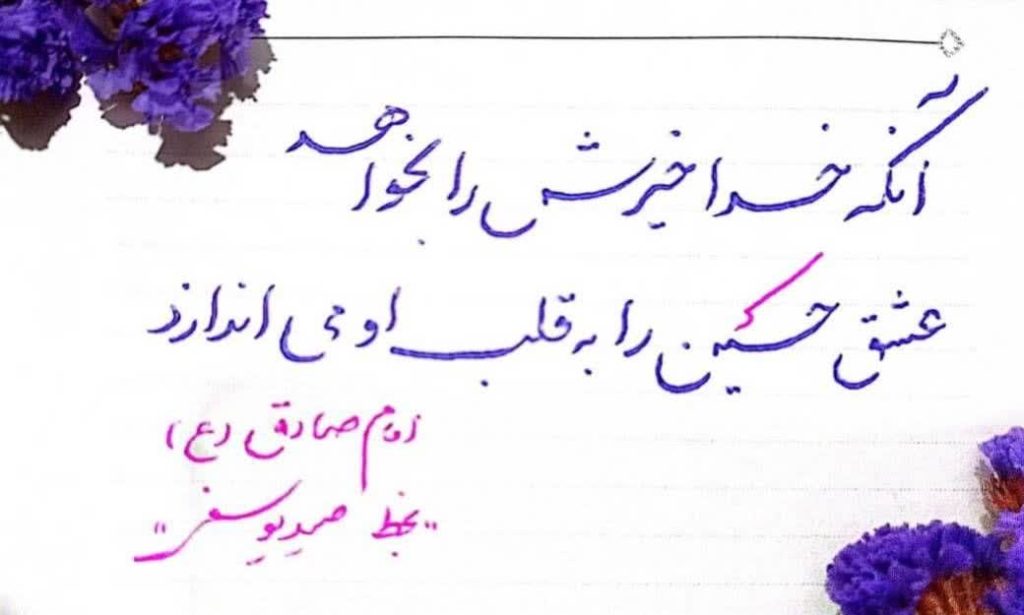 آنکه خدا خیرش را بخواهد
عشق حسین را به قلب او می اندازد
امام صادق (ع)
"بخط حمید یوسفی"